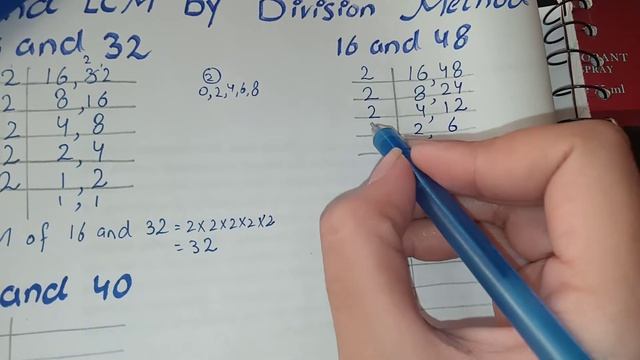 nd LCM by Division Method
and 32
2 | 16, 32
2 | 8, 16
2 | 4, 8
2 | 2, 4
2 | 1, 2
1, 1
M of 16 and 32 = 2×2×2×2×2
= 32
and 40
2
0, 2, 4, 6, 8
16 and 48
2 | 16, 48
2 | 8, 24
2 | 4, 12
2, 6
ANT
SPRAY
ml